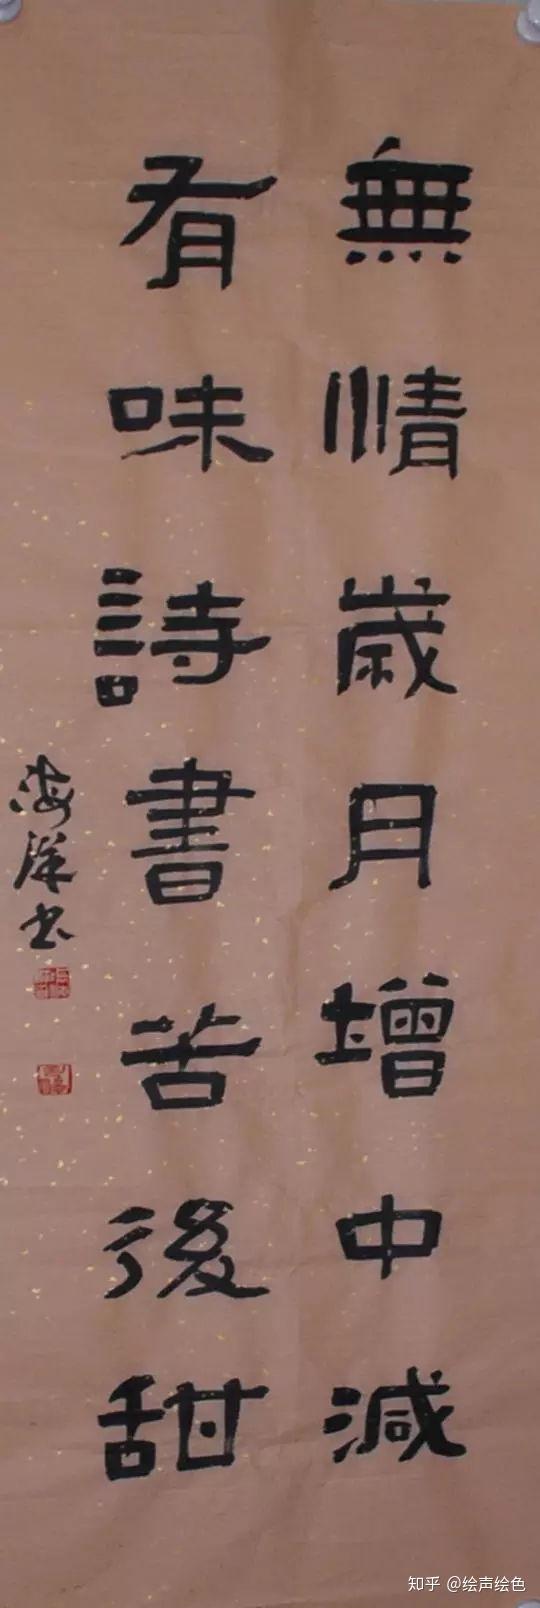 無情歲月增中減
有味詩書苦後甜
海洋书
知乎 @绘声绘色